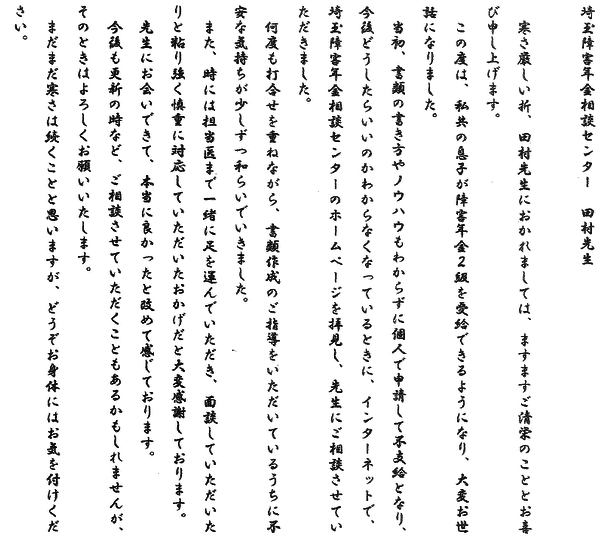 埼玉障害年金相談センター　田村先生
寒さ厳しい折、田村先生におかれましては、ますますご清栄のこととお喜
び申し上げます。
この度は、私共の息子が障害年金２級を受給できるようになり、大変お世
話になりました。
当初、書類の書き方やノウハウもわからずに個人で申請して不支給となり、
今後どうしたらいいのかわからなくなっているときに、インターネットで、
埼玉障害年金相談センターのホームページを拝見し、先生にご相談させてい
ただきました。
何度も打合せを重ねながら、書類作成のご指導をいただいているうちに不
安な気持ちが少しずつ和らいでいきました。
また、時には担当医まで一緒に足を運んでいただき、面談していただいた
りと粘り強く慎重に対応していただいたおかげだと大変感謝しております。
先生にお会いできて、本当に良かったと改めて感じております。
今後も更新の時など、ご相談させていただくこともあるかもしれませんが、
そのときはよろしくお願いいたします。
まだまだ寒さは続くことと思いますが、どうぞお身体にはお気を付けくだ
さい。